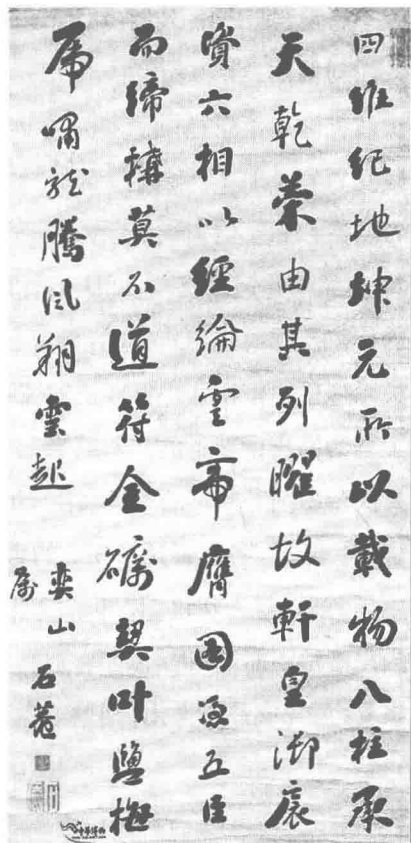 四維紀地坤元所以載物八柱承
天乾象由其列曜故軒皇御扆
資六相以經綸虞帝膺圖馮五臣
而締搆莫不道符金礪契叶鹽梅
虎嘯龍騰風翔雲起
奕山
屬
石菴